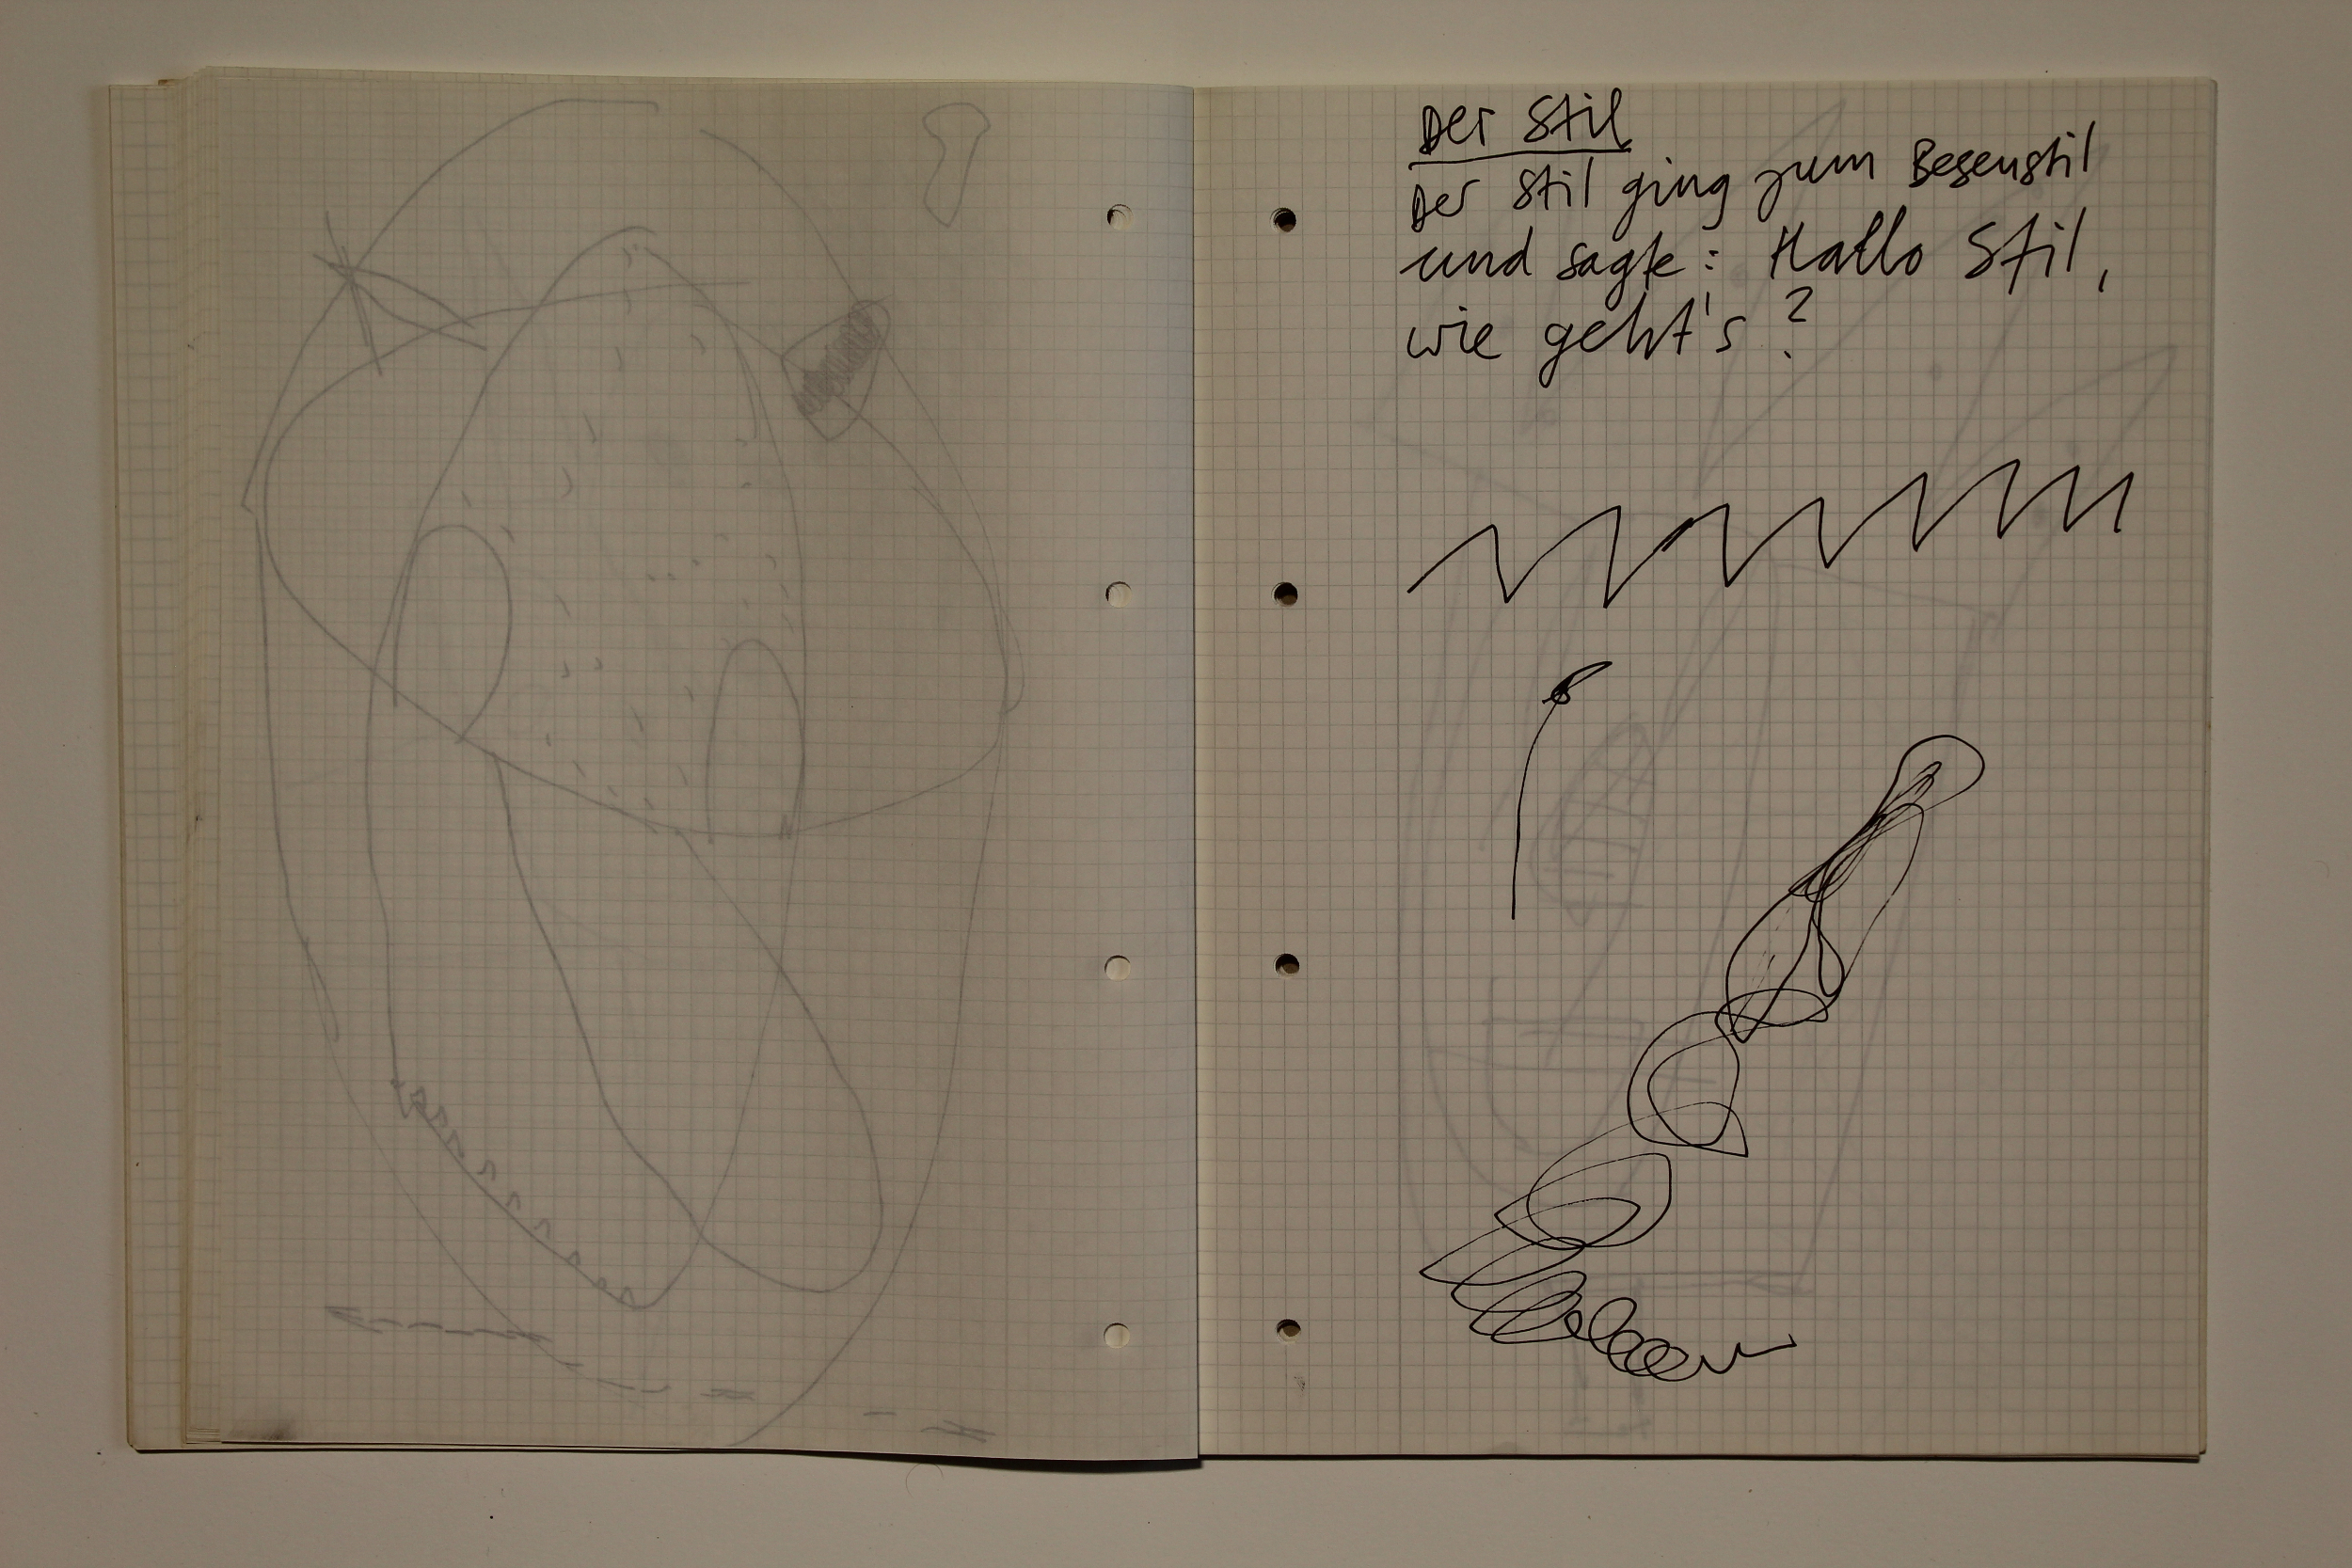 Der Stil
Der Stil ging zum Besenstil
und sagte: Hallo Stil,
wie geht's?